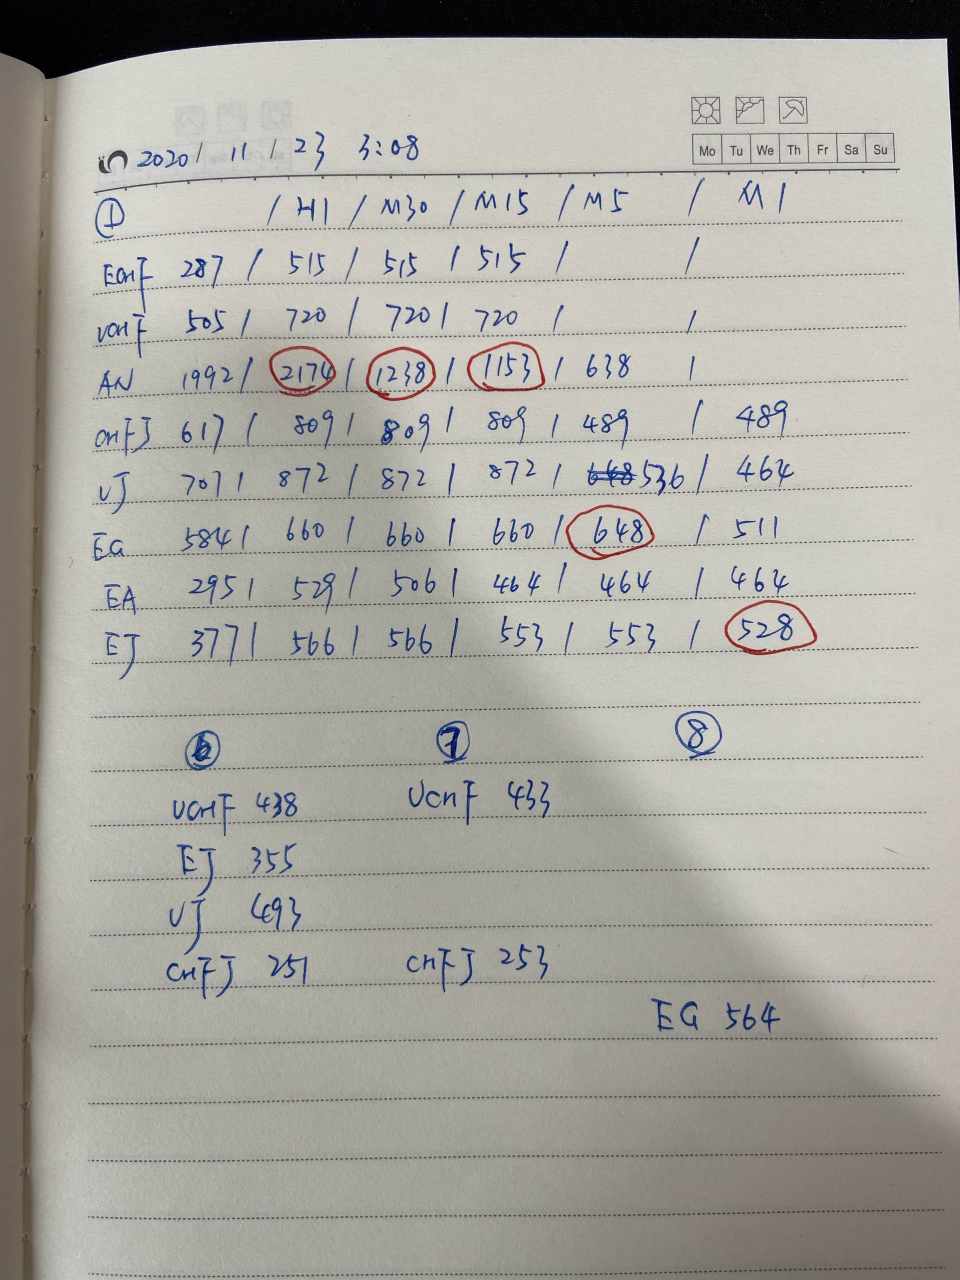 Mo Tu We Th Fr Sa Su
2020/11/23 3:08
① / H1 / M30 / M15 / M5 / M1
ECHF 287 / 515 / 515 / 515 / /
UCHF 505 / 720 / 720 / 720 / /
AN 1992 / 2174 / 1238 / 1153 / 638 /
CHFJ 617 / 809 / 809 / 809 / 489 / 489
UJ 707 / 872 / 872 / 872 / 648 536 / 464
EG 584 / 660 / 660 / 660 / 648 / 511
EA 295 / 529 / 506 / 464 / 464 / 464
EJ 377 / 566 / 566 / 553 / 553 / 528
⑥ ⑦ ⑧
UCHF 438 UCHF 433
EJ 355
UJ 493
CHFJ 251 CHFJ 253
EG 564